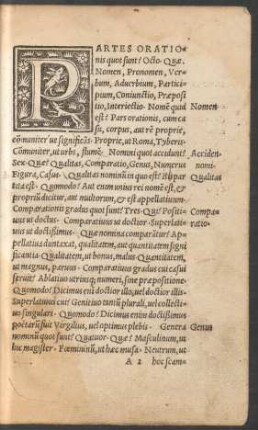 PARTES ORATIO-
nis quot sunt? Octo· Quæ·
Nomen, Pronomen, Ver-
bum, Aduerbium, Partici
pium, Coniunctio, Præposi
tio, Interiectio· Nomē quid Nomen
est? Pars orationis, cum ca
su, corpus, aut rē proprie,
cōmuniter ue significās· Proprie, ut Roma, Tyberis·
Cōmuniter, ut urbs, flumē· Nomini quot accidunt? Acciden.
Sex· Quæ? Qualitas, Comparatio, Genus, Numerus nomi·
Figura, Casus· Qualitas nominū in quo est? Bipar Qualitas
tita est· Quomodo? Aut enim unius rei nomē est, &
propriū dicitur, aut multorum, & est appellatiuum·
Comparationis gradus quot sunt? Tres· Qui? Positius Compa-
ut doctus· Comparatiuus ut doctior· Superlati- ratio·
uus ut doctissimus· Quæ nomina comparātur? Ap
pellatiua duntaxat, qualitatem, aut quantitatem signi
ficantia· Qualitatem, ut bonus, malus· Quantitatem,
ut magnus, paruus· Comparatiuus gradus cui casui
seruit? Ablatiuo utriusq; numeri, sine præpositione·
Quomodo? Dicimus enī doctior illo, uel doctior illis·
Superlatiuus cui? Genitiuo tantū plurali, uel collecti-
uo singulari· Quomodo? Dicimus enim doctissimus
poëtarū fuit Virgilius, uel optimus plebis· Genera Genus
nominū quot sunt? Quatuor· Quæ? Masculinum, ut
hic magister· Fœmininū, ut hæc musa· Neutrum, ut
A 2 hoc scam-